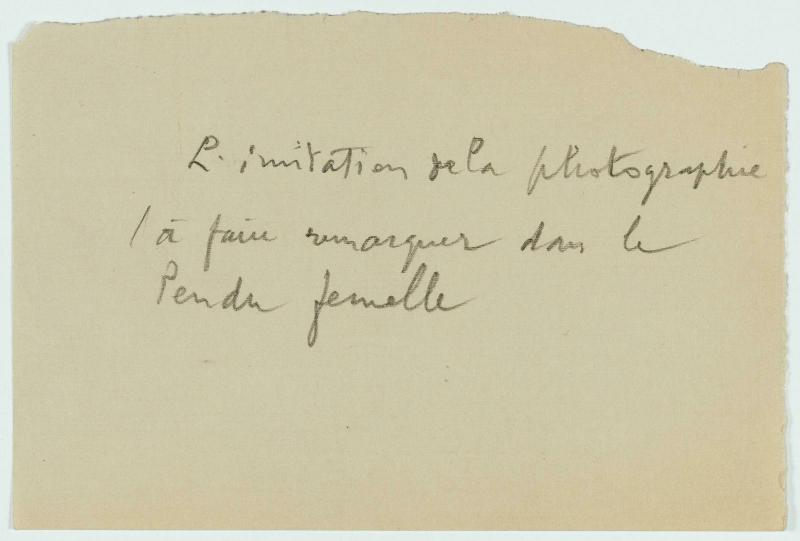 L'imitation de la photographie
/ à faire remarquer dans le
Pendu femelle